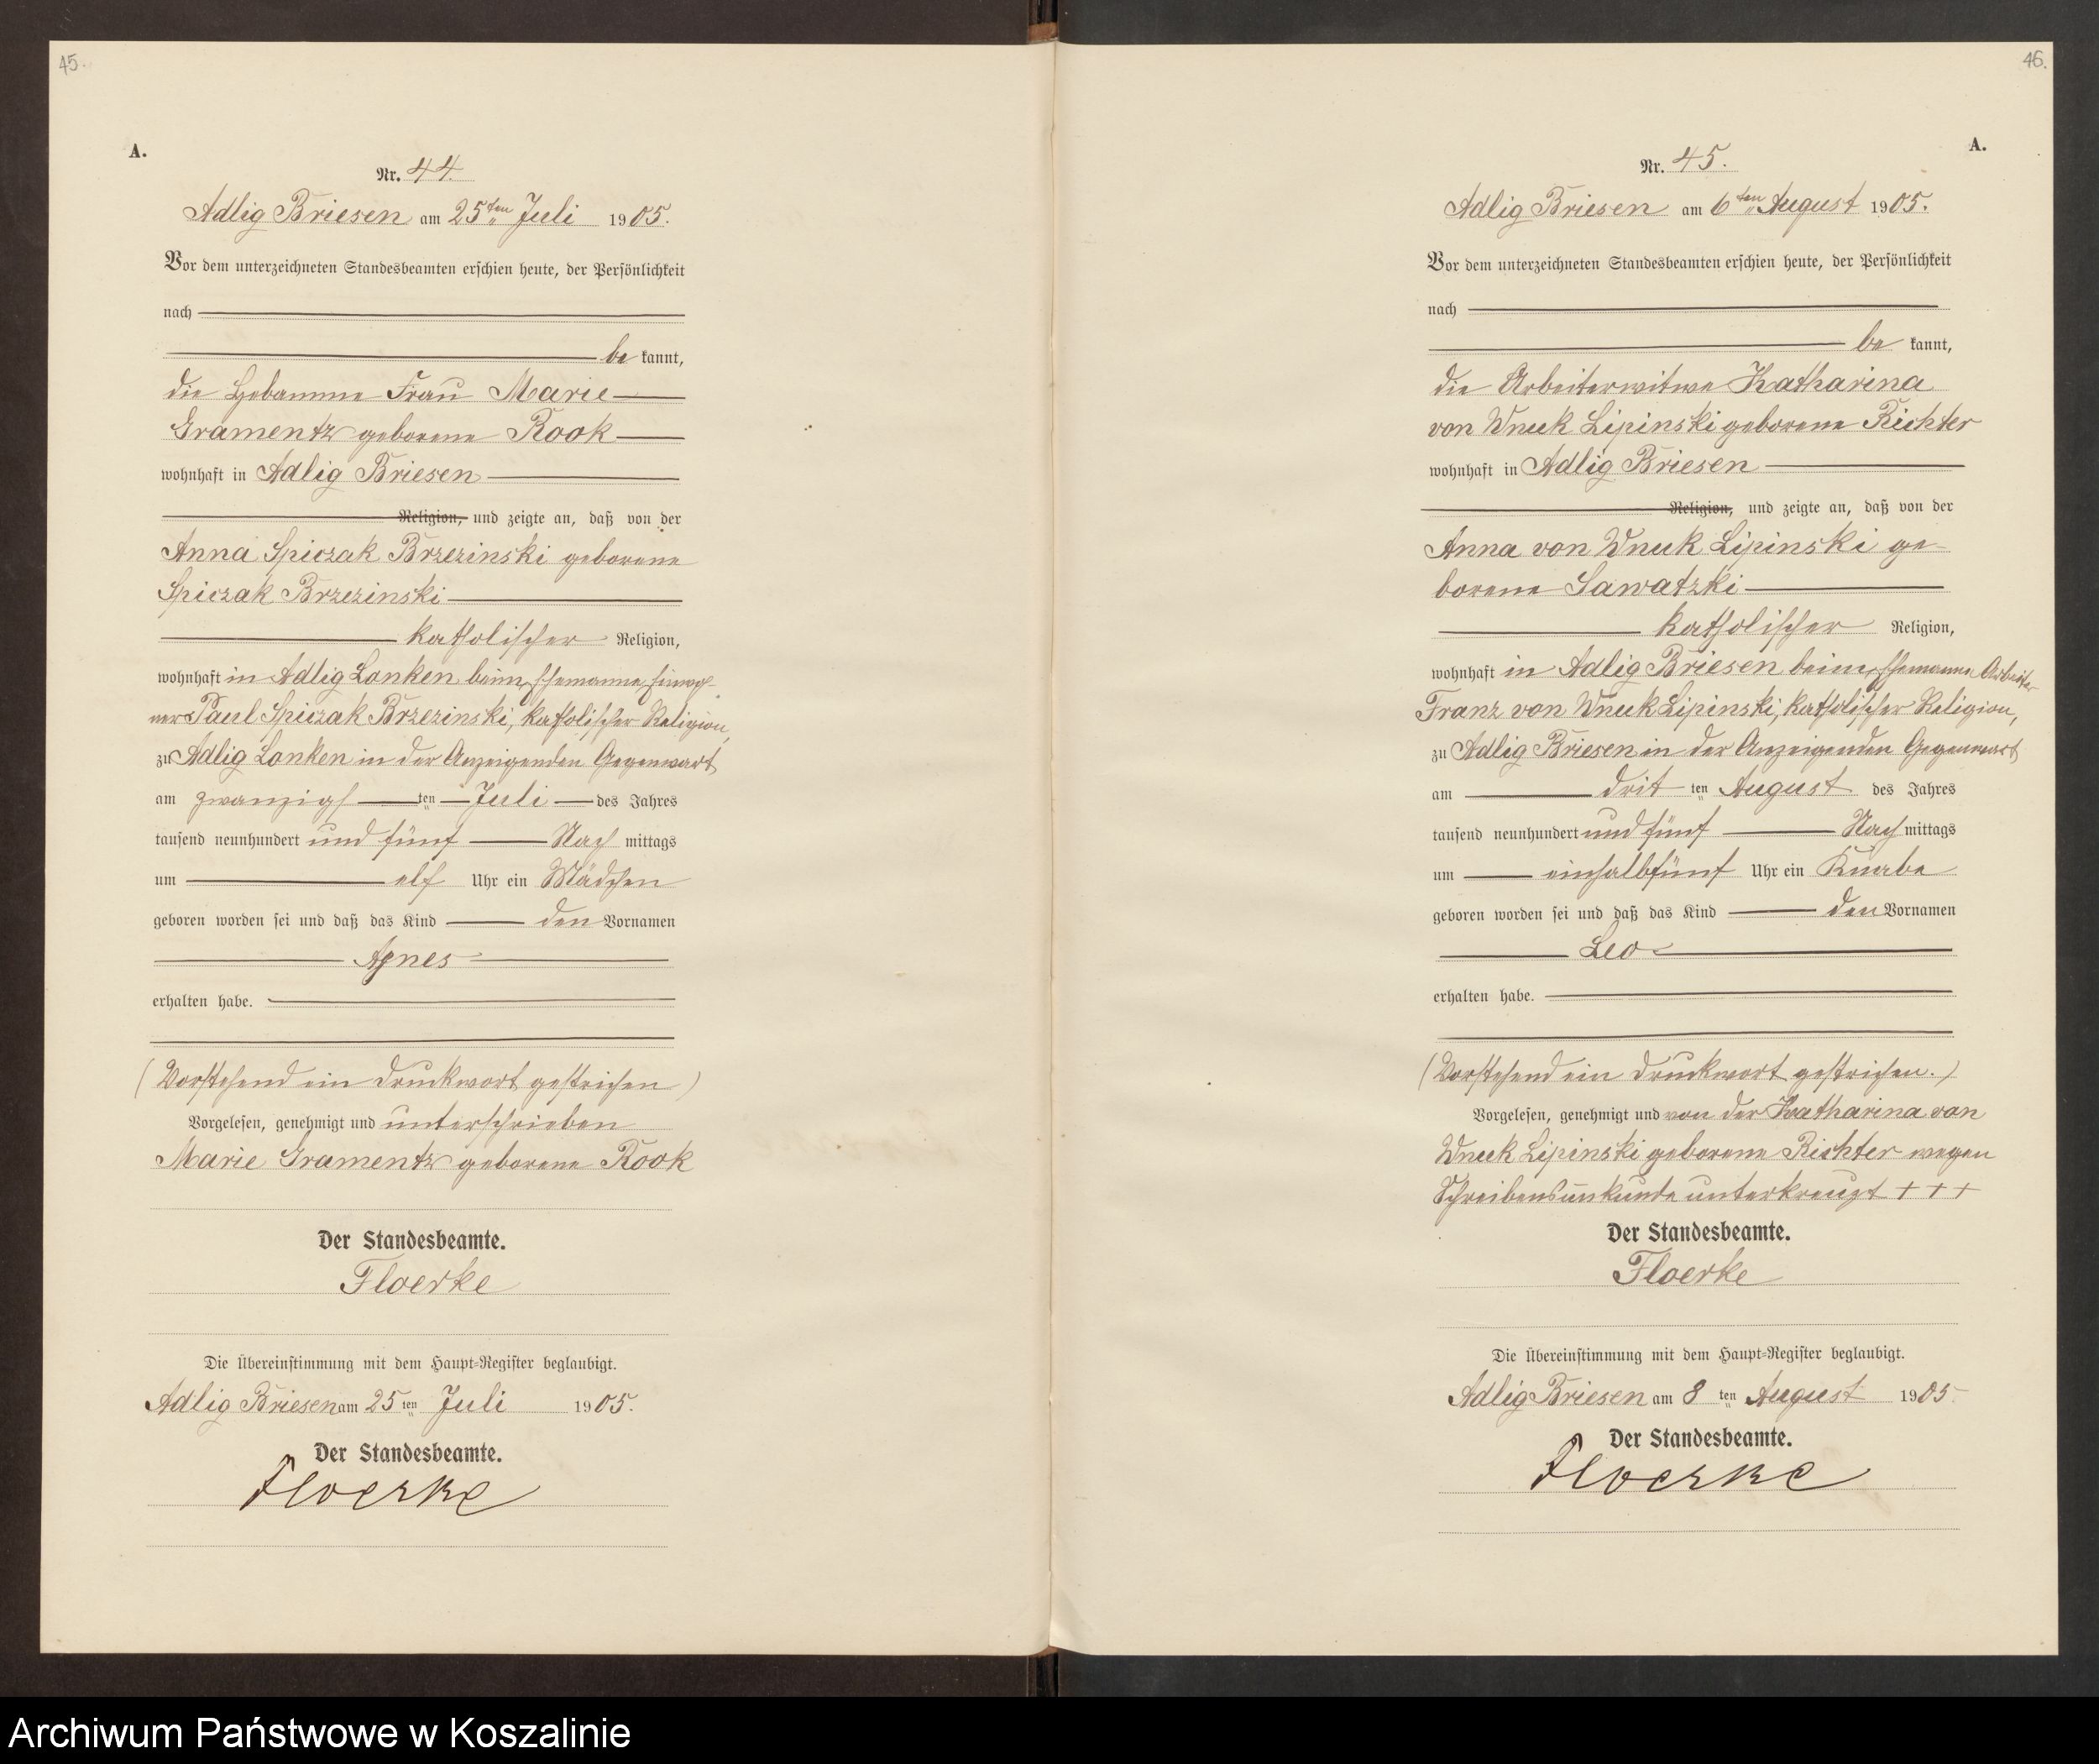 45.
A.
Nr. 44.
Adlig Briesen am 25ten Juli 1905.
Vor dem unterzeichneten Standesbeamten erschien heute, der Persönlichkeit
nach
be kannt,
die Hebamme Frau Marie
Gramentz geborene Rook
wohnhaft in Adlig Briesen
Religion, und zeigte an, daß von der
Anna Spiczak Brzezinski geborene
Spiczak Brzezinski
katholischer Religion,
wohnhaft in Adlig Lonken beim Ehemanne Einwoh-
ner Paul Spiczak Brzezinski, katholischer Religion,
zu Adlig Lonken in der Anzeigenden Gegenwart
am zwanzigs ten Juli des Jahres
tausend neunhundert und fünf Nach mittags
um elf Uhr ein Mädchen
geboren worden sei und daß das Kind den Vornamen
Agnes
erhalten habe.
(Vorstehend ein Druckwort gestrichen)
Vorgelesen, genehmigt und unterschrieben
Marie Gramentz geborene Rook
Der Standesbeamte.
Floerke
Die Übereinstimmung mit dem Haupt-Register beglaubigt.
Adlig Briesen am 25 ten Juli 1905.
Der Standesbeamte.
Floerke
46.
A.
Nr. 45.
Adlig Briesen am 6ten August 1905.
Vor dem unterzeichneten Standesbeamten erschien heute, der Persönlichkeit
nach
be kannt,
die Arbeiterwitwe Katharina
von Wnuk Lipinski geborene Richter
wohnhaft in Adlig Briesen
Religion, und zeigte an, daß von der
Anna von Wnuk Lipinski ge-
borene Sawatzki
katholischer Religion,
wohnhaft in Adlig Briesen beim Ehemanne Arbeiter
Franz von Wnuk Lipinski, katholischer Religion,
zu Adlig Briesen in der Anzeigenden Gegenwart
am drit ten August des Jahres
tausend neunhundert und fünf Nach mittags
um einhalbfünf Uhr ein Knabe
geboren worden sei und daß das Kind den Vornamen
Leo
erhalten habe.
(Vorstehend ein Druckwort gestrichen.)
Vorgelesen, genehmigt und von der Katharina von
Wnuk Lipinski geborene Richter wegen
Schreibensunkunde unterkreuzt + + +
Der Standesbeamte.
Floerke
Die Übereinstimmung mit dem Haupt-Register beglaubigt.
Adlig Briesen am 8 ten August 1905
Der Standesbeamte.
Floerke
Archiwum Państwowe w Koszalinie